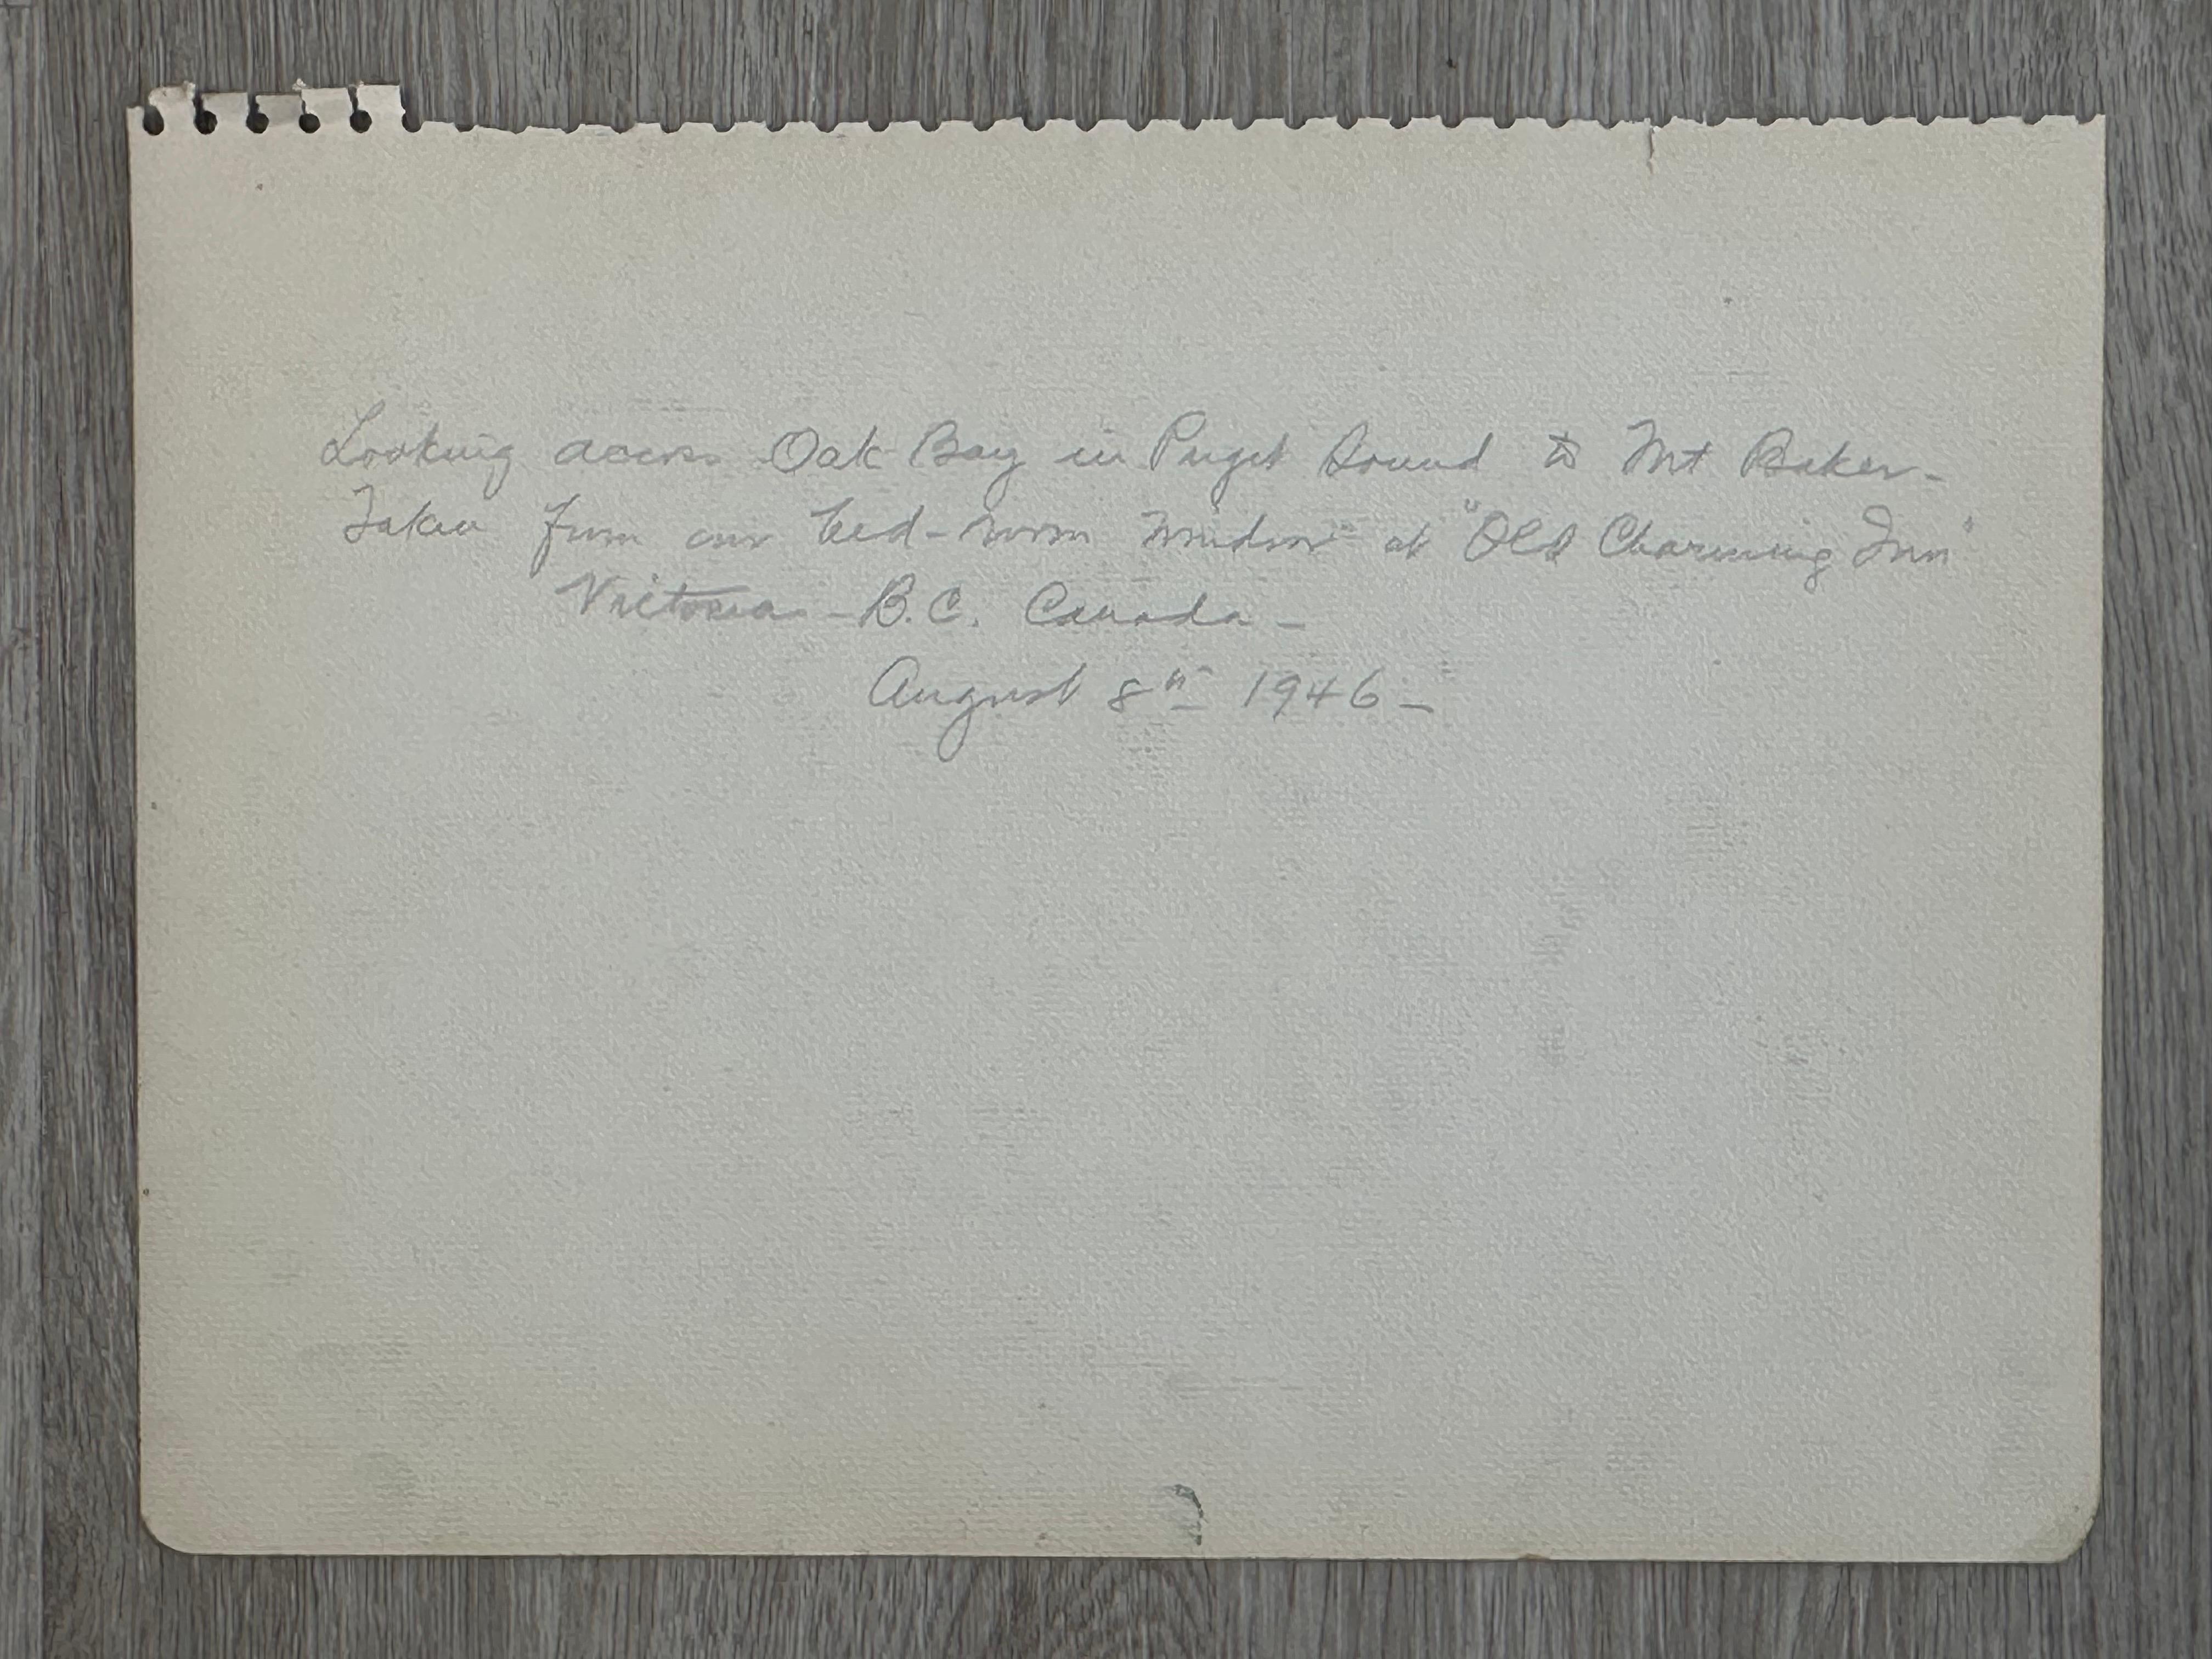 Looking across Oak Bay in Puget Sound to Mt Baker -
Taken from our bed-room window at "Old Charming Inn"
Victoria - B.C. Canada -
August 8th 1946 -